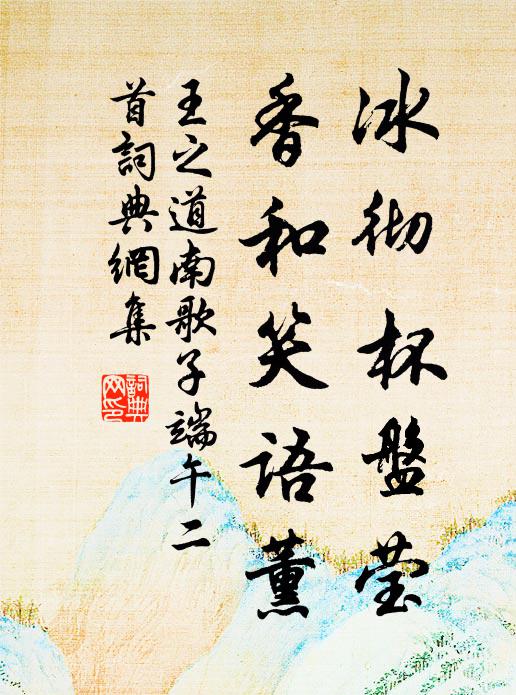 冰彻杯盤莹
香和笑语薰
王之道南歌子端午二
首詞典網集
詞典
网印